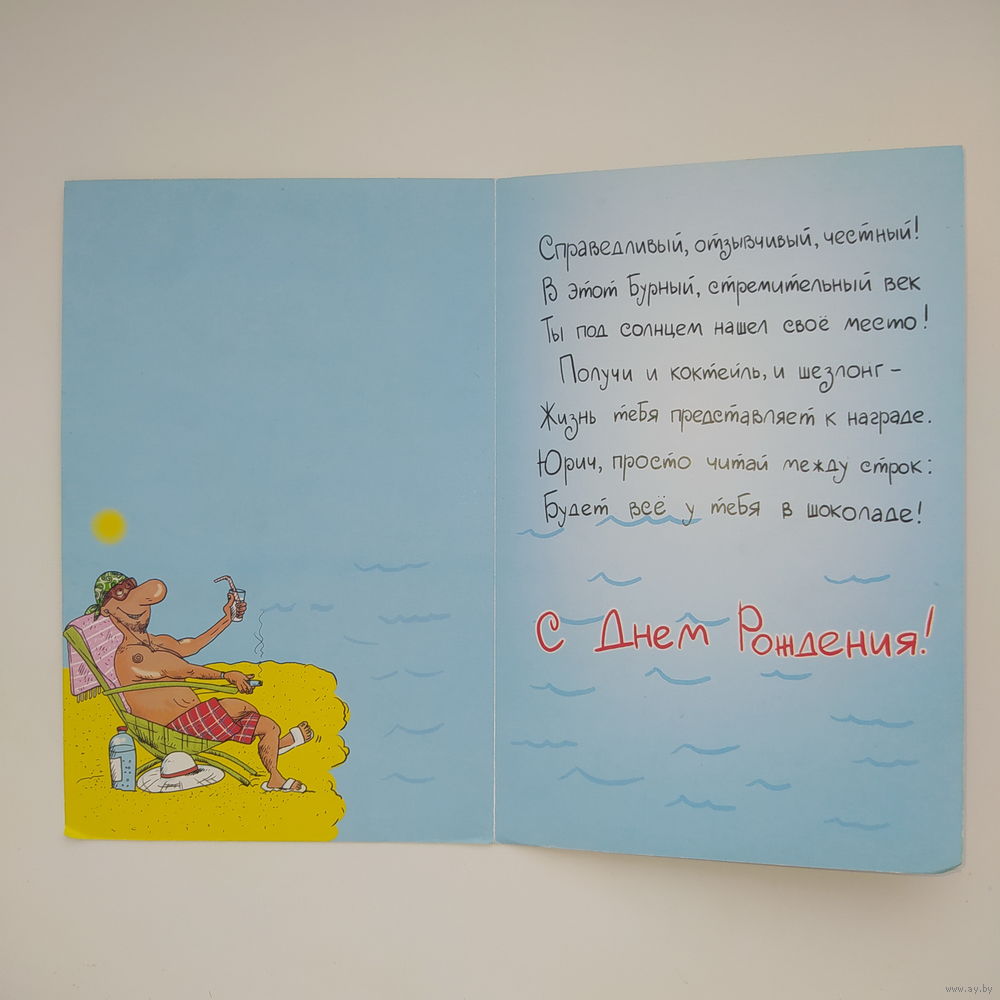 Справедливый, отзывчивый, честный!
В этот бурный, стремительный век
Ты под солнцем нашел своё место!
Получи и коктейль, и шезлонг –
Жизнь тебя представляет к награде.
Юрич, просто читай между строк:
Будет всё у тебя в шоколаде!
С Днем Рождения!
www.ay.by